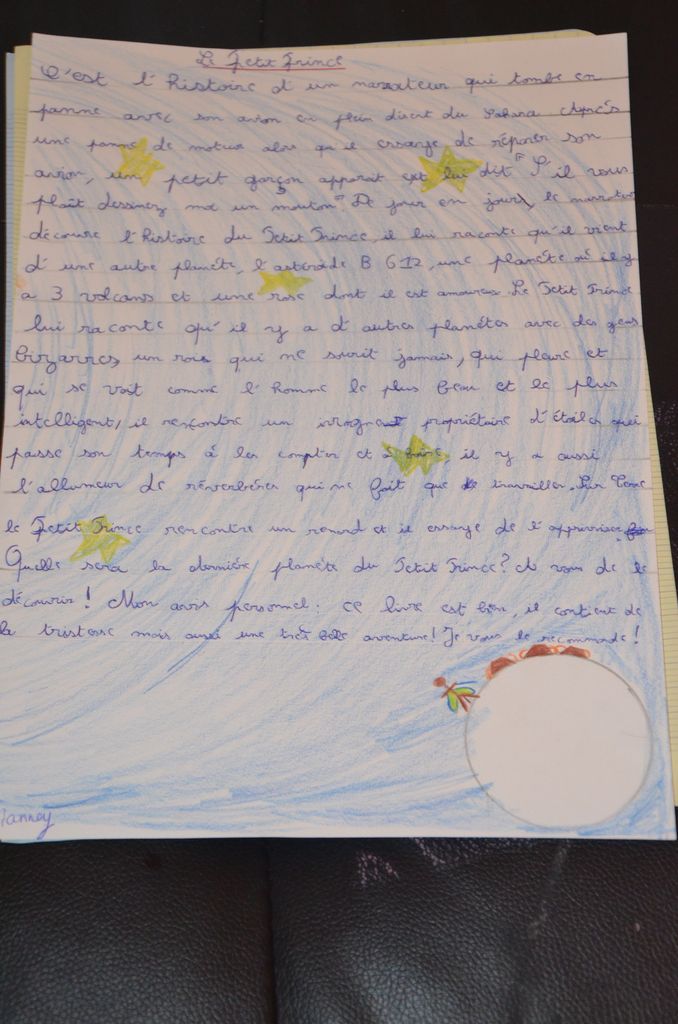 Le Petit Prince
C'est l'histoire d'un narrateur qui tombe en
panne avec son avion en plein désert du Sahara Après
une panne de moteur alors qu'il essaye de réparer son
avion, un petit garçon apparait et lui dit "S'il vous
plaît dessinez moi un mouton". De jour en jours, le narrateur
découvre l'histoire du Petit Prince, il lui raconte qu'il vient
d'une autre planète, l'astéroïde B 612, une planète où il y
a 3 volcans et une rose dont il est amoureux. Le Petit Prince
lui raconte qu'il y a d'autres planètes avec des gens
bizarres, un roi qui ne sourit jamais, qui pleure et
qui se voit comme l'homme le plus beau et le plus
intelligent, il rencontre un propriétaire d'étoiles qui
passe son temps à les compter et il y a aussi
l'allumeur de réverbères qui ne fait que travailler. Sur Terre
le Petit Prince rencontre un renard et il essaye de l'apprivoiser
Quelle sera la dernière planète du Petit Prince? A vous de le
découvrir! Mon avis personnel: ce livre est bien, il contient de
la tristesse mais aussi une très belle aventure! Je vous le recommande!